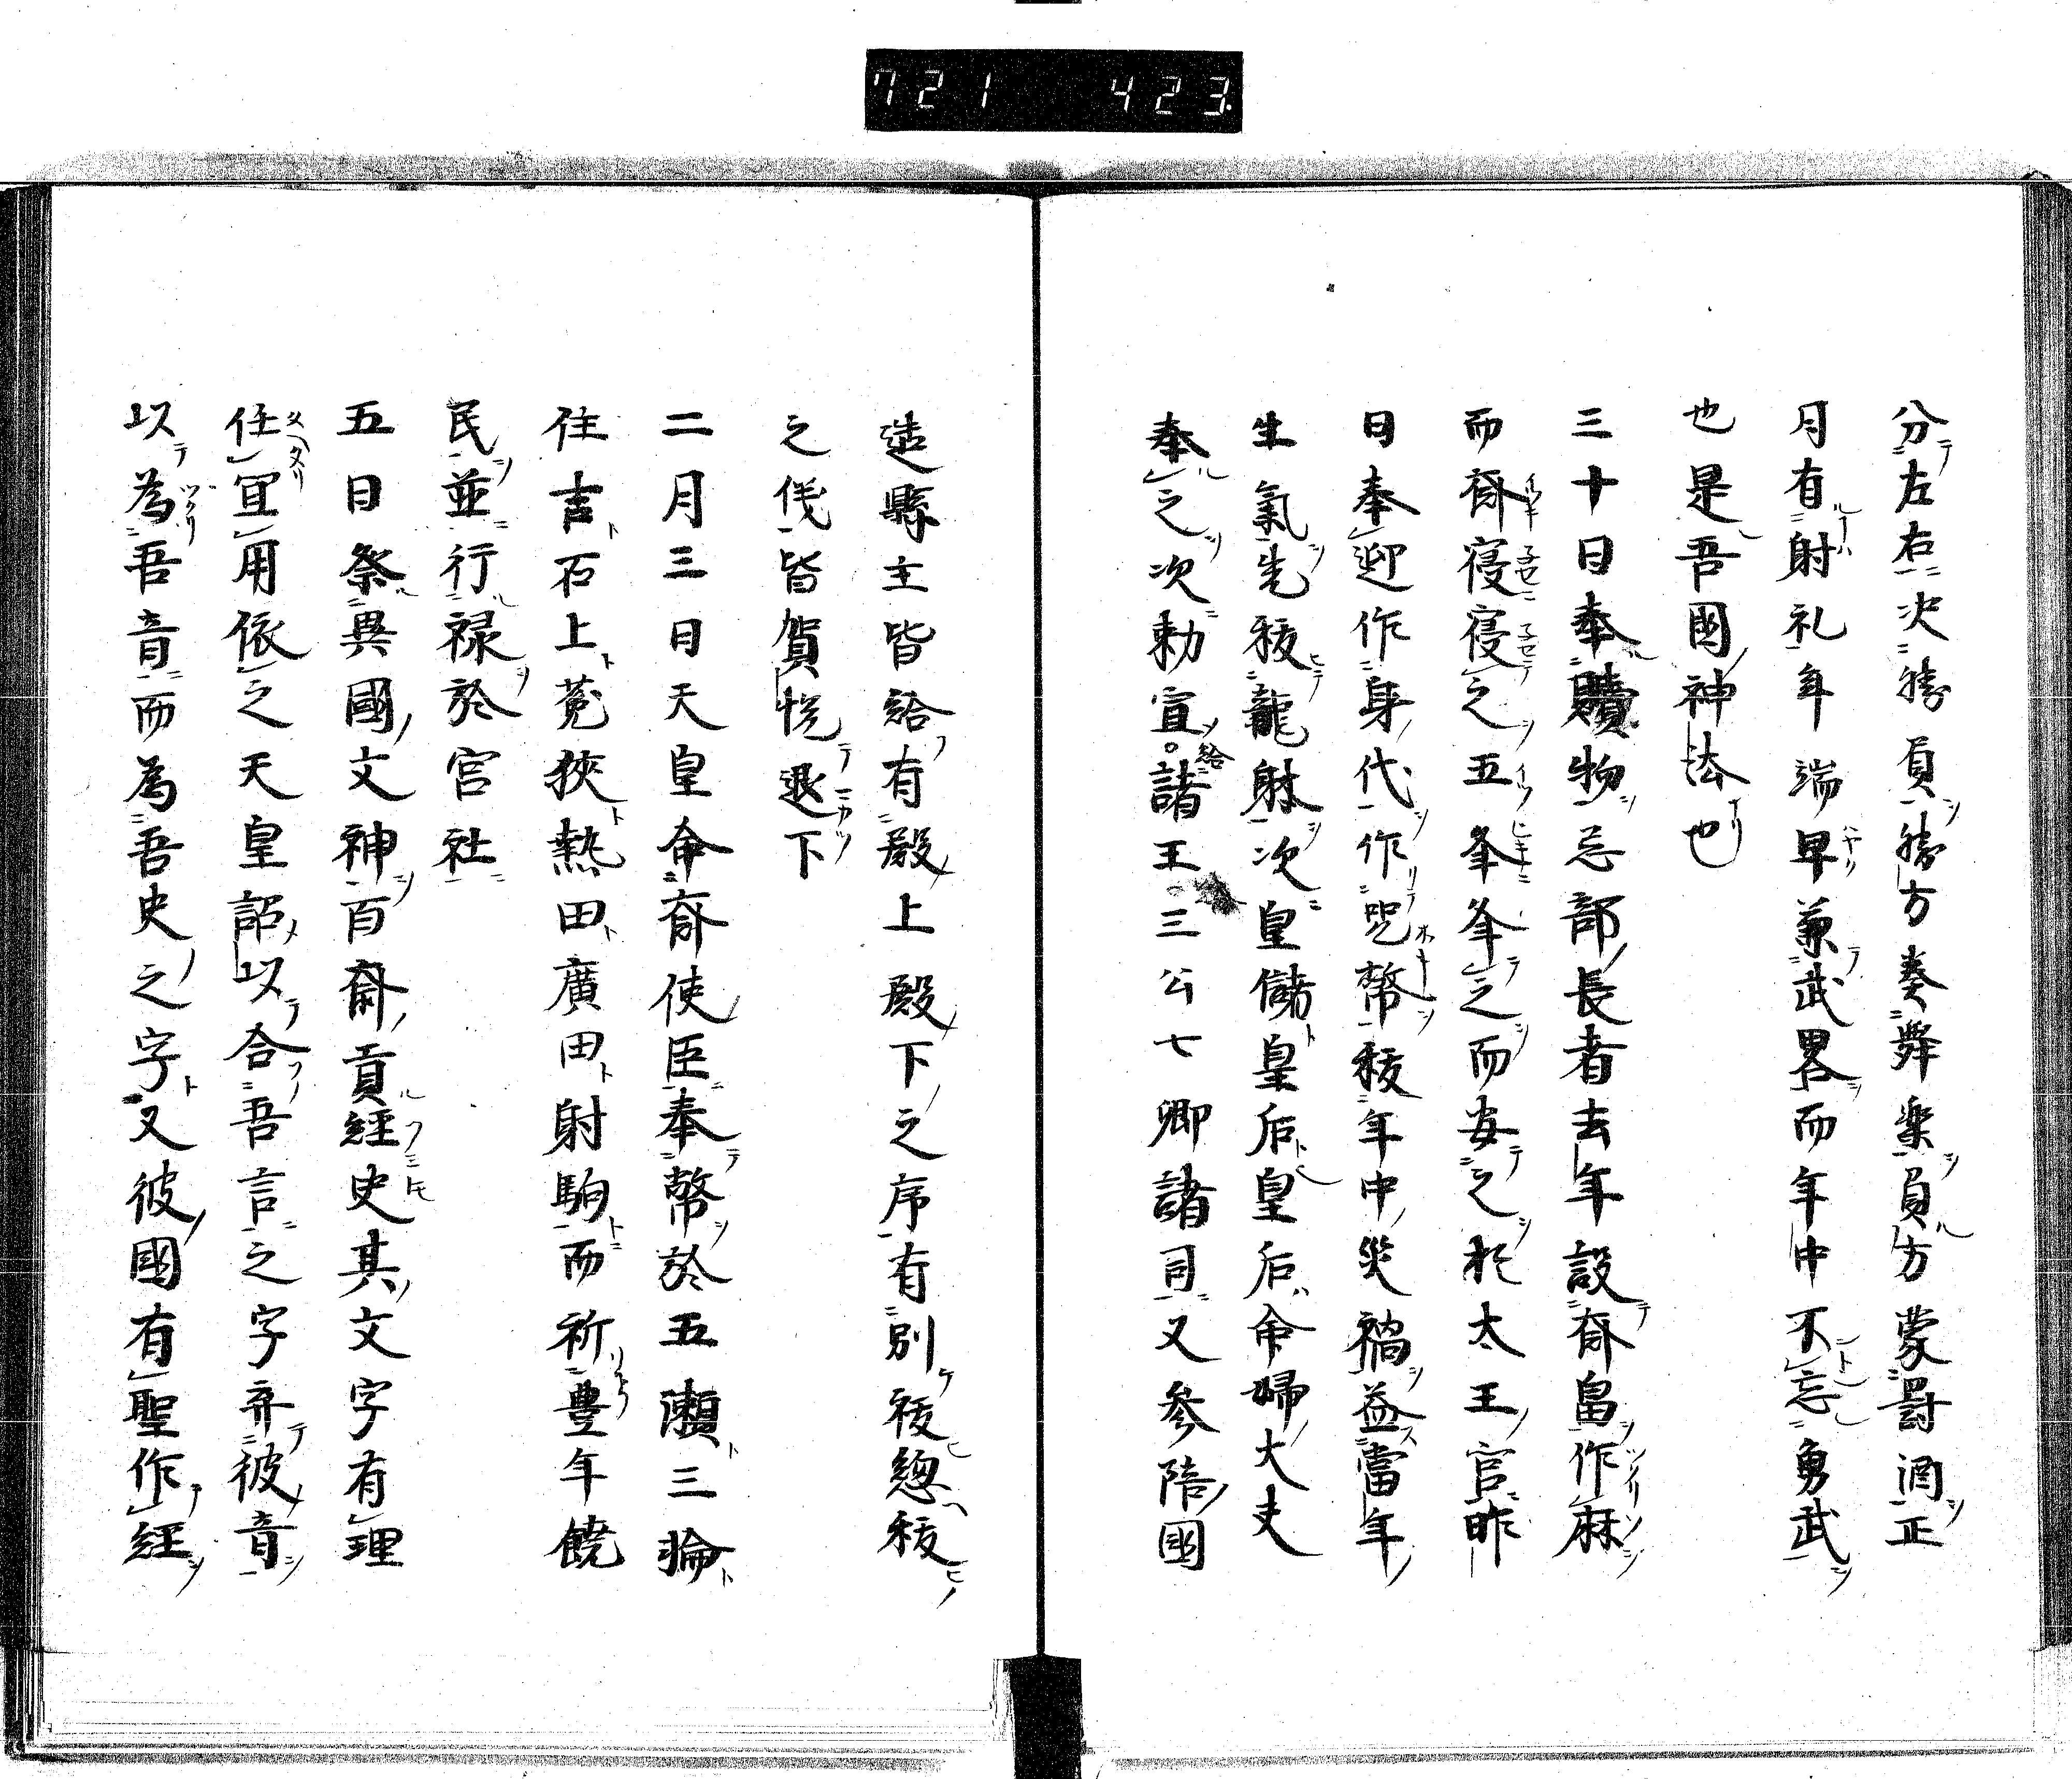 721 423
分左右決勝負勝方奏舞楽負方蒙罸酒正
月有射礼年端早兼武畧而年中不忘勇武
也是吾國神法也
三十日奉贖物忌部長者去年設齋畠作麻
而齋寝寝之五峯峯之而安之於太王官昨
日奉迎作身代作咒幣秡年中災禍益當年
生氣先秡龍躰次皇儲皇后皇后命婦大夫
奉之次勅宣。給諸王三公七卿諸司又参陪國
造縣主皆給有殿上殿下之序有別秡總秡
之後皆賀悦退下
二月三日天皇命齋使臣奉幣於五瀬三輪
住吉石上菟狹熱田廣田射駒而祈豊年饒
民並行禄於宮社
五日祭異國文神百齋貢經史其文字有理
任宜用依之天皇詔以合吾言之字弃彼音
以為吾音而為吾史之字又彼國有聖作經